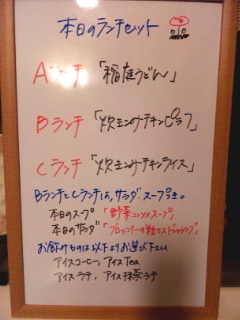 本日のランチセット
Aランチ 「稲庭うどん」
Bランチ 「炊モンのチキンピラフ」
Cランチ 「炊モンのチキンライス」
BランチとCランチは、サラダ スープつき。
本日のスープ 「野菜コンソメスープ」
本日のサラダ 「ブロッコリーの
お飲みものは以下よりお選び下さい
アイスコーヒー、アイスTea
アイスラテ、アイス抹茶ラテ